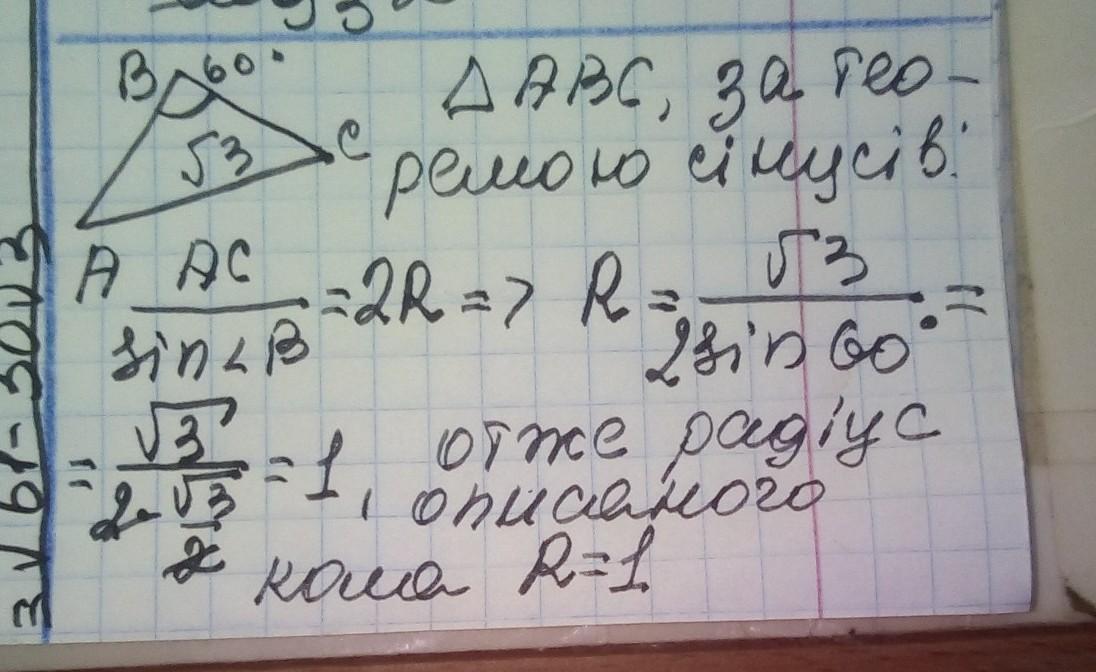 B 60°
△ABC, за тео-
√3 C
ремою сінусів:
A
AC / sin∠B = 2R => R = √3 / 2sin60° =
= √3 / 2·√3/2 = 1, отже радіус
описаного
кола R=1